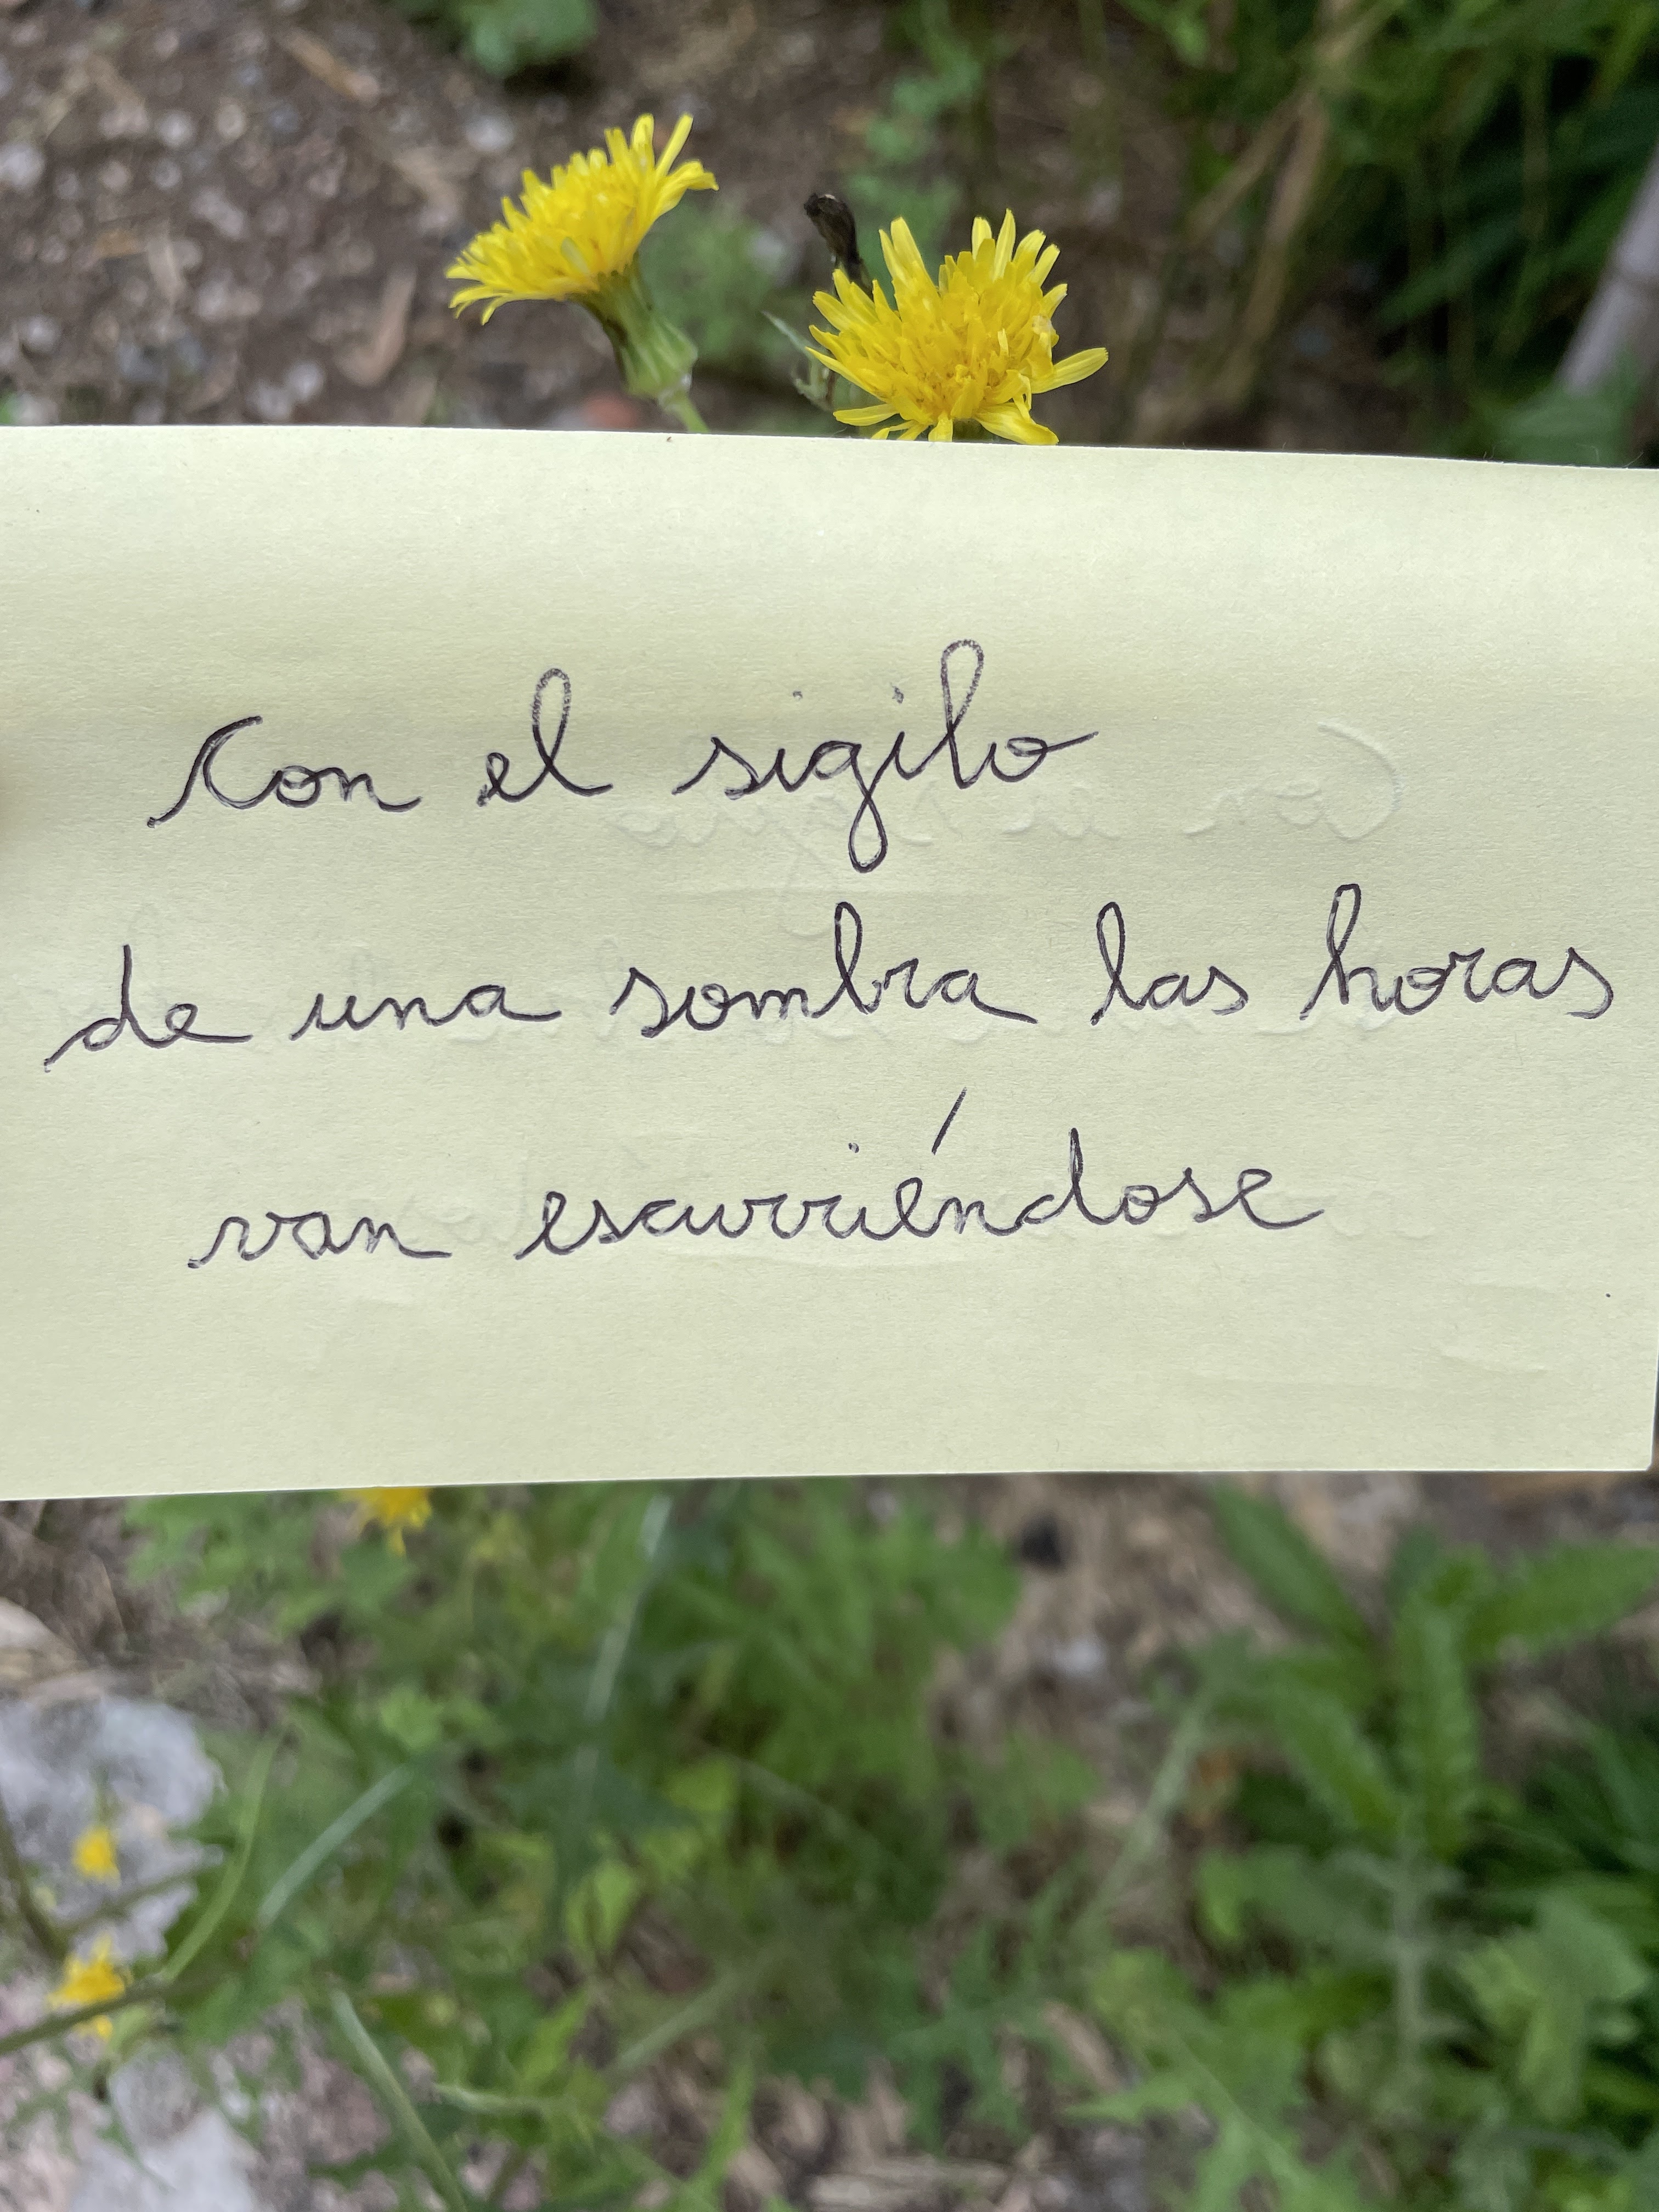 Con el sigilo
de una sombra las horas
van escurriéndose